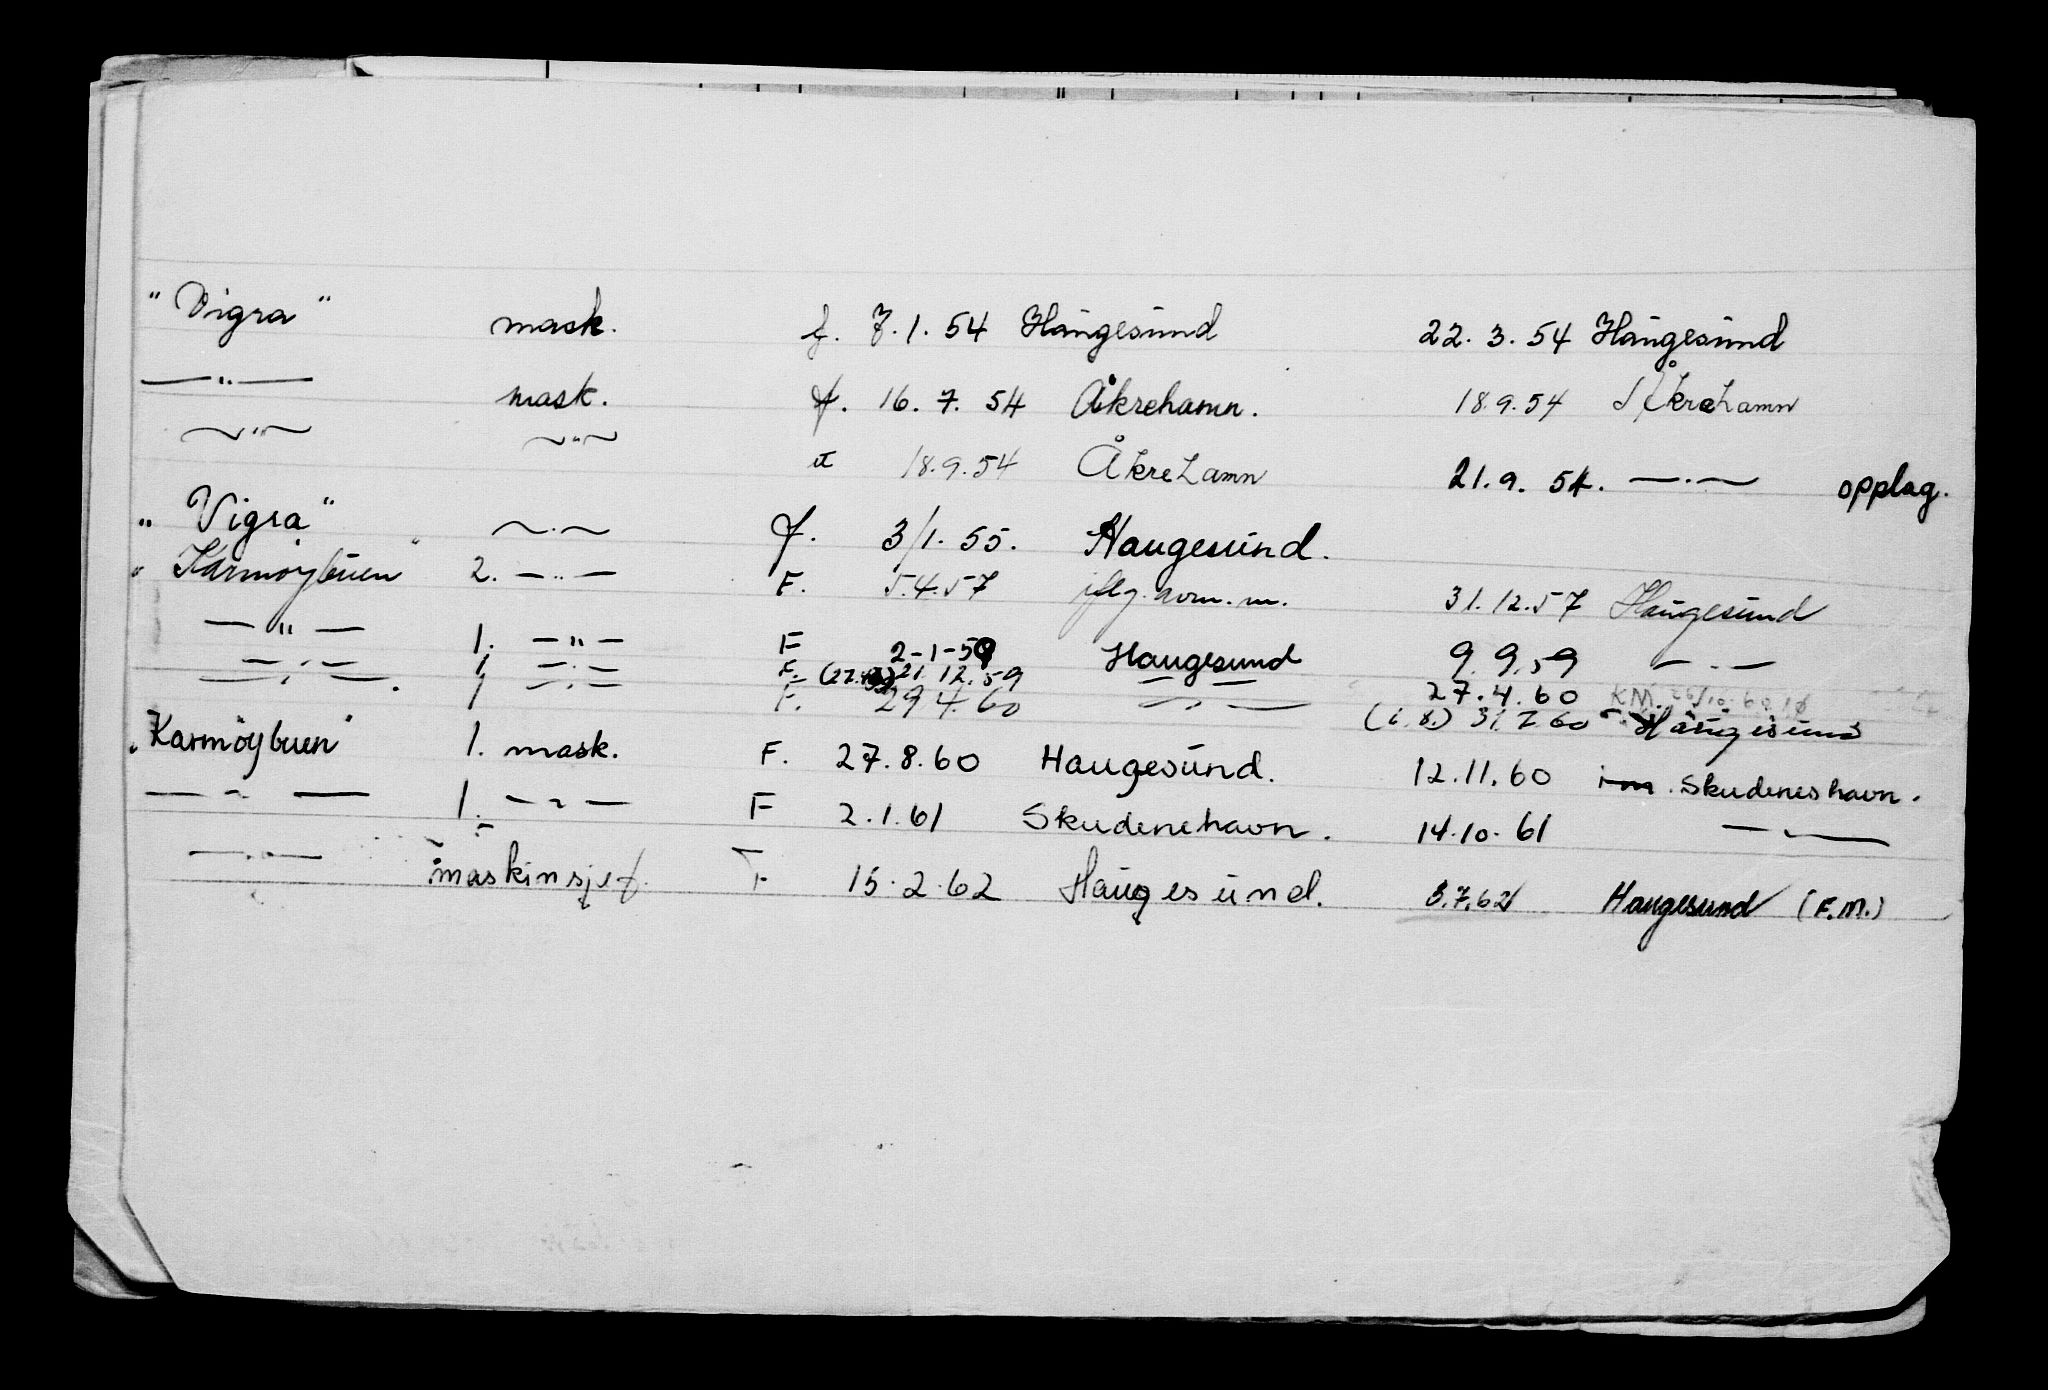 "Vigra" mask. f. 7.1.54 Haugesund 22.3.54 Haugesund
—"— mask. f. 16.7.54 Åkrehamn. 18.9.54 Åkrehamn
—"— —"— 18.9.54 Åkrehamn 21.9.54. —"— opplag.
"Vigra" —"— f. 3/1.55. Haugesund.
"Karmøybuen" 2. —"— F. 5.4.57 iflg. m. 31.12.57 Haugesund
—"— 1. —"— F 2-1-59 Haugesund 9.9.59 —"—
—"— 1. —"— F. 21.12.59 —"— 27.4.60 KM.
—"— 1 —"— F. 29.4.60 —"— 31.7.60 Haugesund
"Karmöybuen" 1. mask. F. 27.8.60 Haugesund. 12.11.60 Skudeneshavn.
—"— 1. —"— F 2.1.61 Skudenehavn. 14.10.61 —"—
—"— maskinsjef. F 15.2.62 Haugesund. 3.7.62 Haugesund (F.M.)